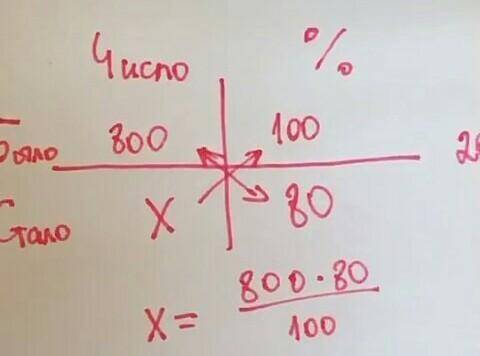 Число %
Было 800 100
Стало X 80
X = 800 · 80 / 100